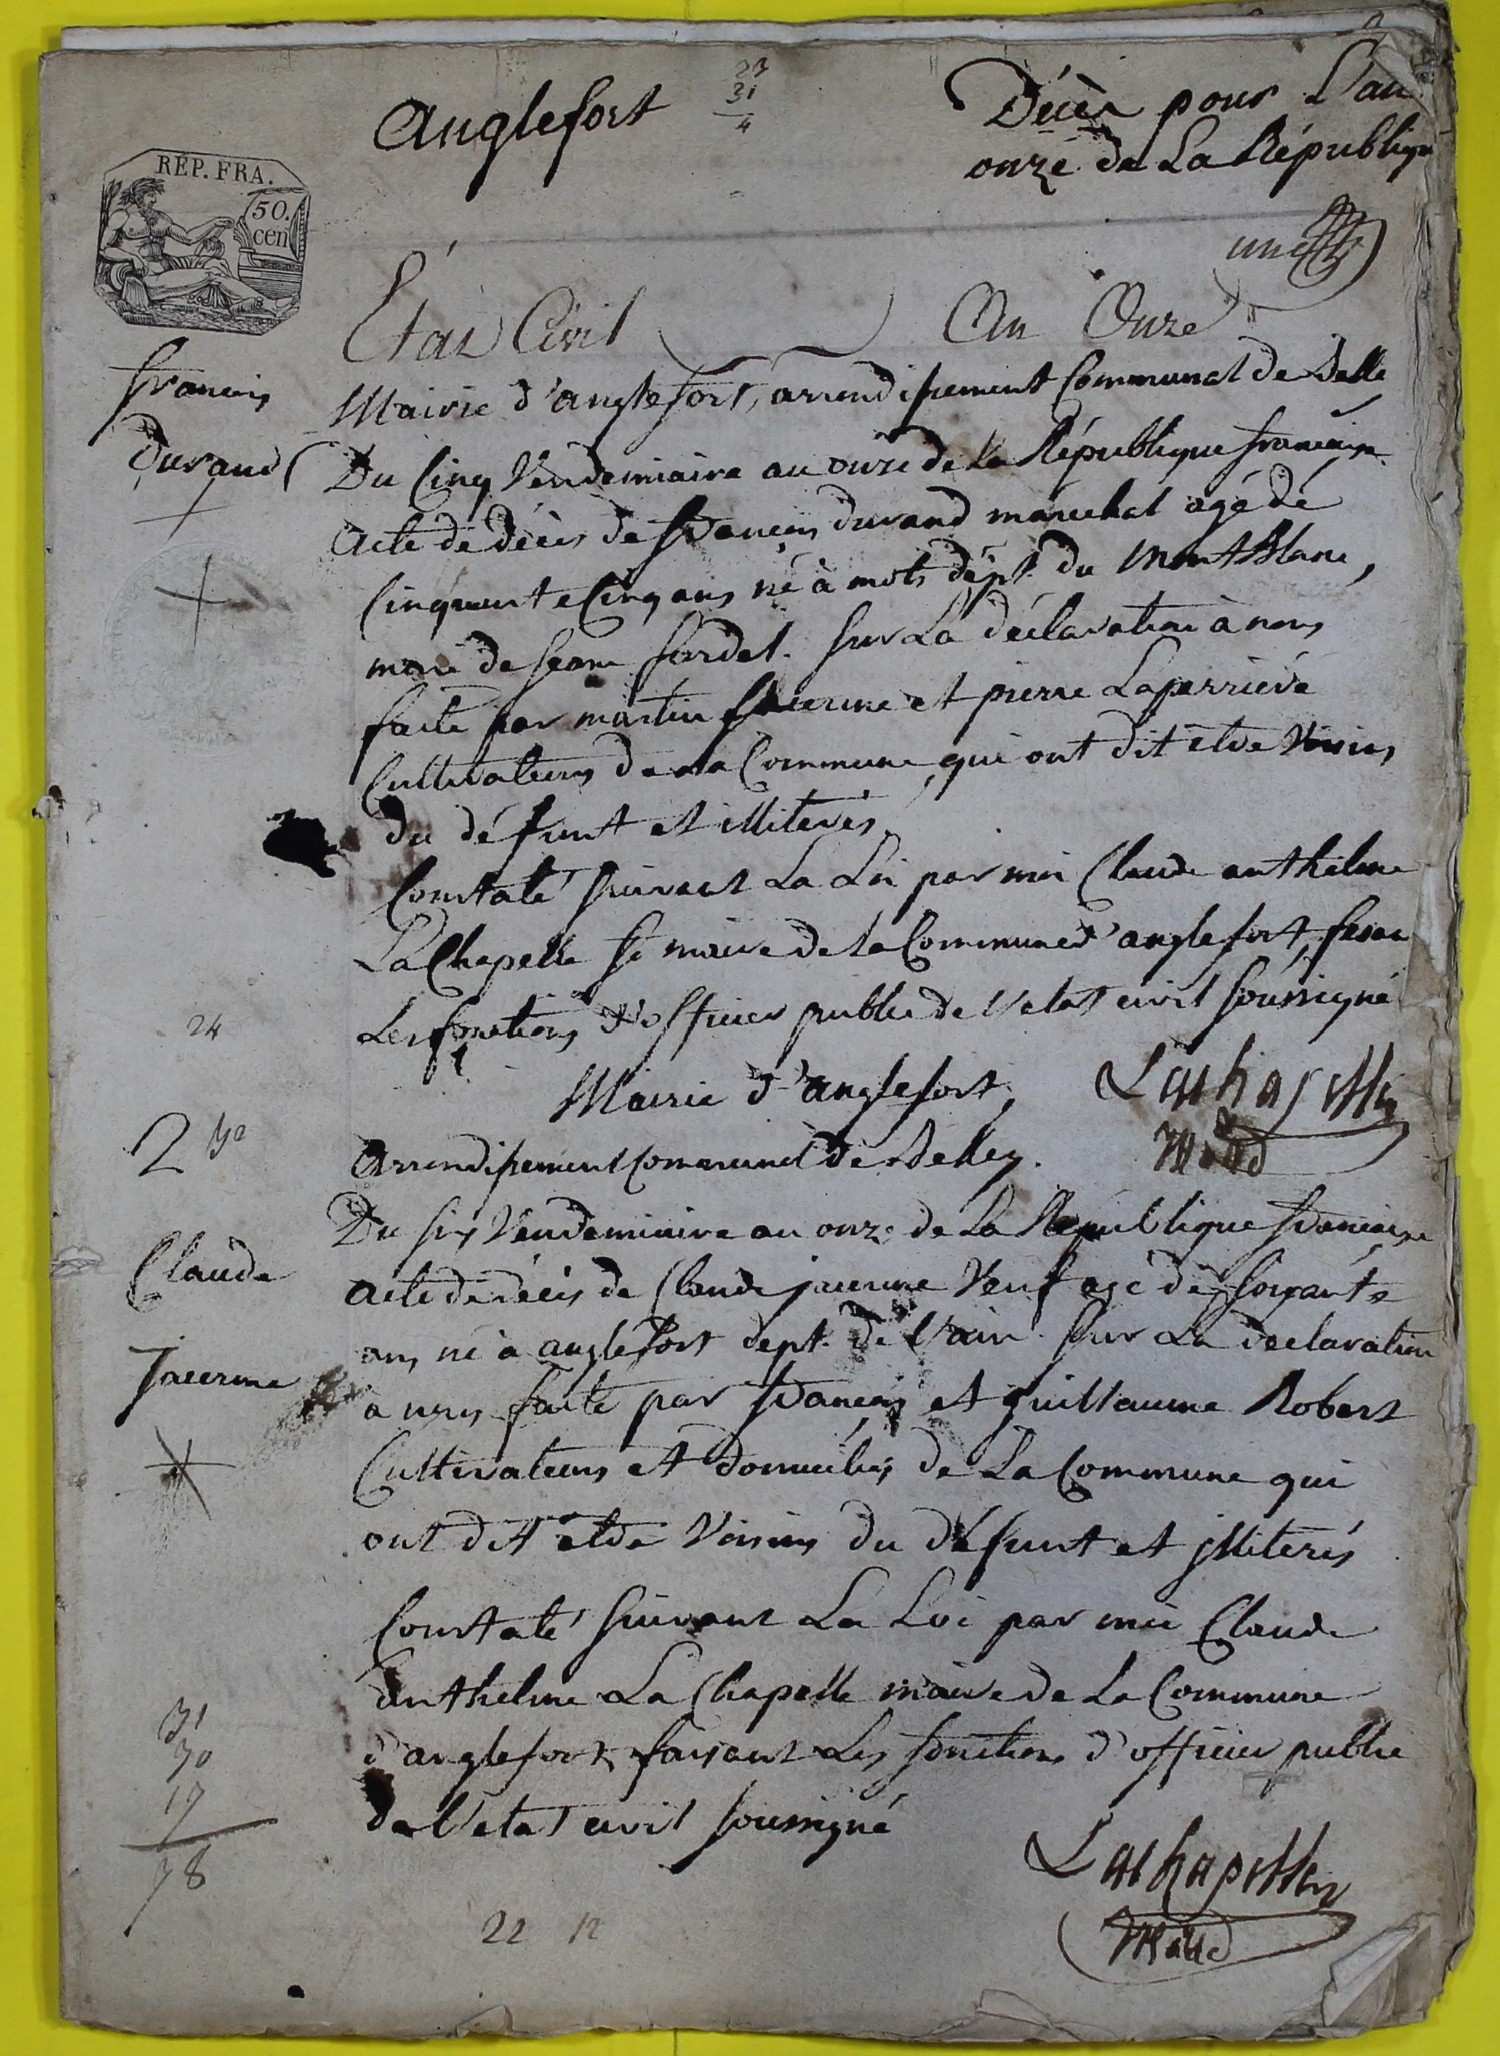 Anglefort
23
31
4
Décès pour L'an
onze de La République
RÉP. FRA.
50.
cen
Etat Civil An Onze
françois
durand
Mairie d'anglefort, arrondissement Communal de Belle
Du Cinq Vendemiaire an onze de la République francaise
Acte de décès de françois durand maréchal agé de
Cinquante Cinq ans né à mots dépt. du Mont Blanc,
mari de jeane fardel. Sur La déclaration à nous
faite par martin jacerme et pierre Laperrière
Cultivateurs de la Commune, qui ont dit etre Voisins
du défunt et illiterés
Constaté Suivant La Loi par moi Claude anthelme
LaChapelle maire de la Commune d'anglefort, fesan
Les fonctions d'officier public de l'etat civil soussigné
24
Lachapelle
Mairie d'anglefort,
Arrondissement Communal de Belley.
2
Du six Vendemiaire an onze de La République francaise
Claude
Jacerme
acte de décès de Claude jacerme Veuf agé de soixante
ans né à anglefort dept. de l'ain. Sur La declaration
a nous faite par françois et guillaume Robert
Cultivateurs et domiciliés de La Commune qui
ont dit etre Voisins du défunt et jlliterés
Constaté Suivant La Loi par moi Claude
anthelme La Chapelle maire de La Commune
d'anglefort, faisant Les fonctions d'officier public
de l'etat civil soussigné
31
30
17
78
Lachapelle
22 12